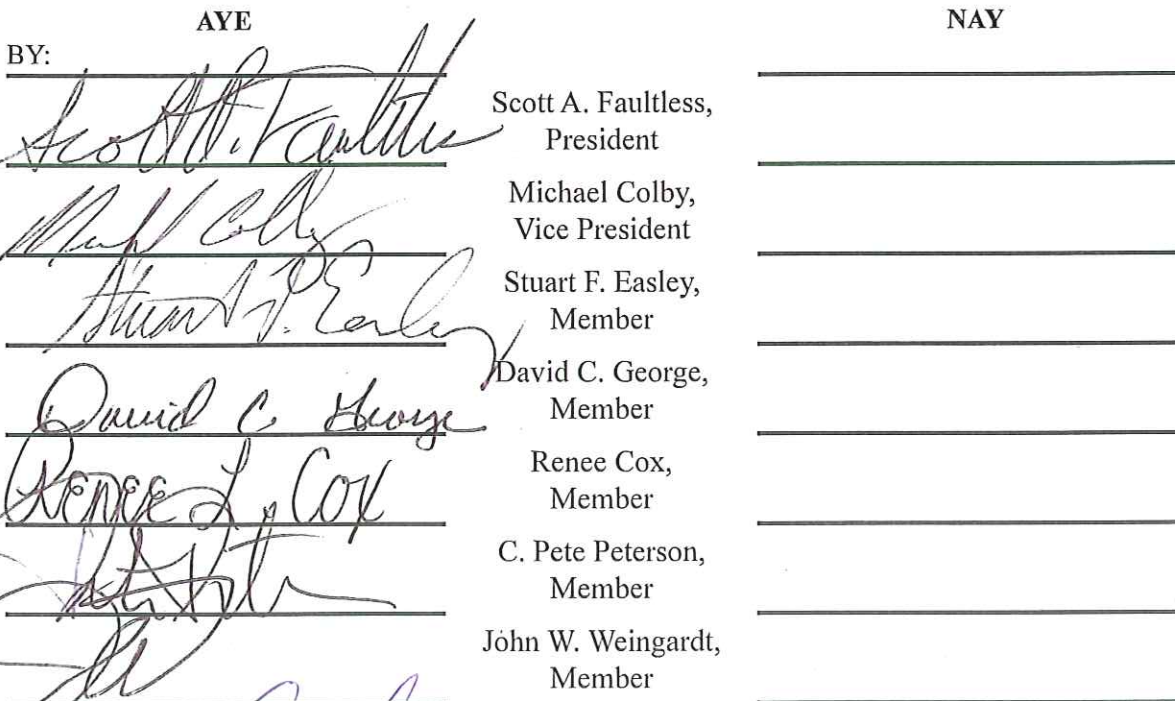 AYE NAY
BY:
Scott A. Faultless
Scott A. Faultless,
President
Michael Colby,
Vice President
Stuart F. Easley
Stuart F. Easley,
Member
David C. George
David C. George,
Member
RENEE L. COX
Renee Cox,
Member
C. Pete Peterson,
Member
John W. Weingardt,
Member